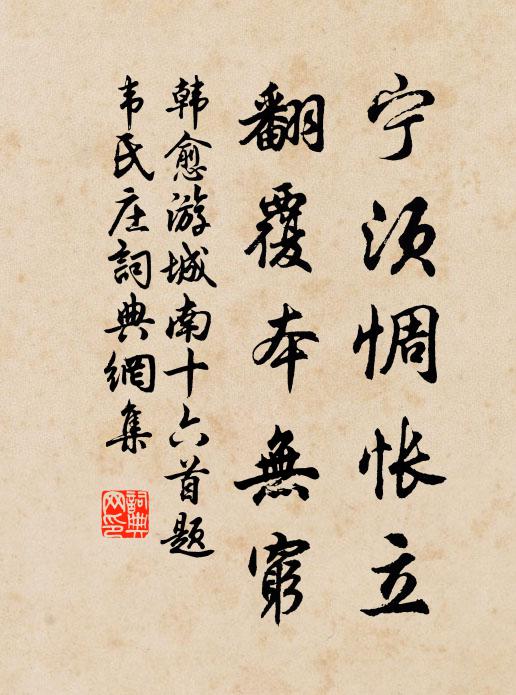 宁须惆怅立
翻覆本無窮
韩愈游城南十六首题
韦氏庄詞典網集
詞典
网印